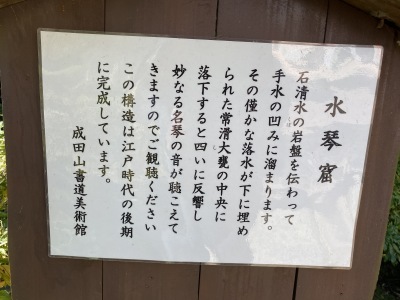 水琴窟
石清水の岩盤を伝わって
手水の凹みに溜まります。
その僅かな落水が下に埋め
られた常滑大甕の中央に
落下すると四いに反響し
妙なる名琴の音が聴こえて
きますのでご観聴ください
この構造は江戸時代の後期
に完成しています。
成田山書道美術館